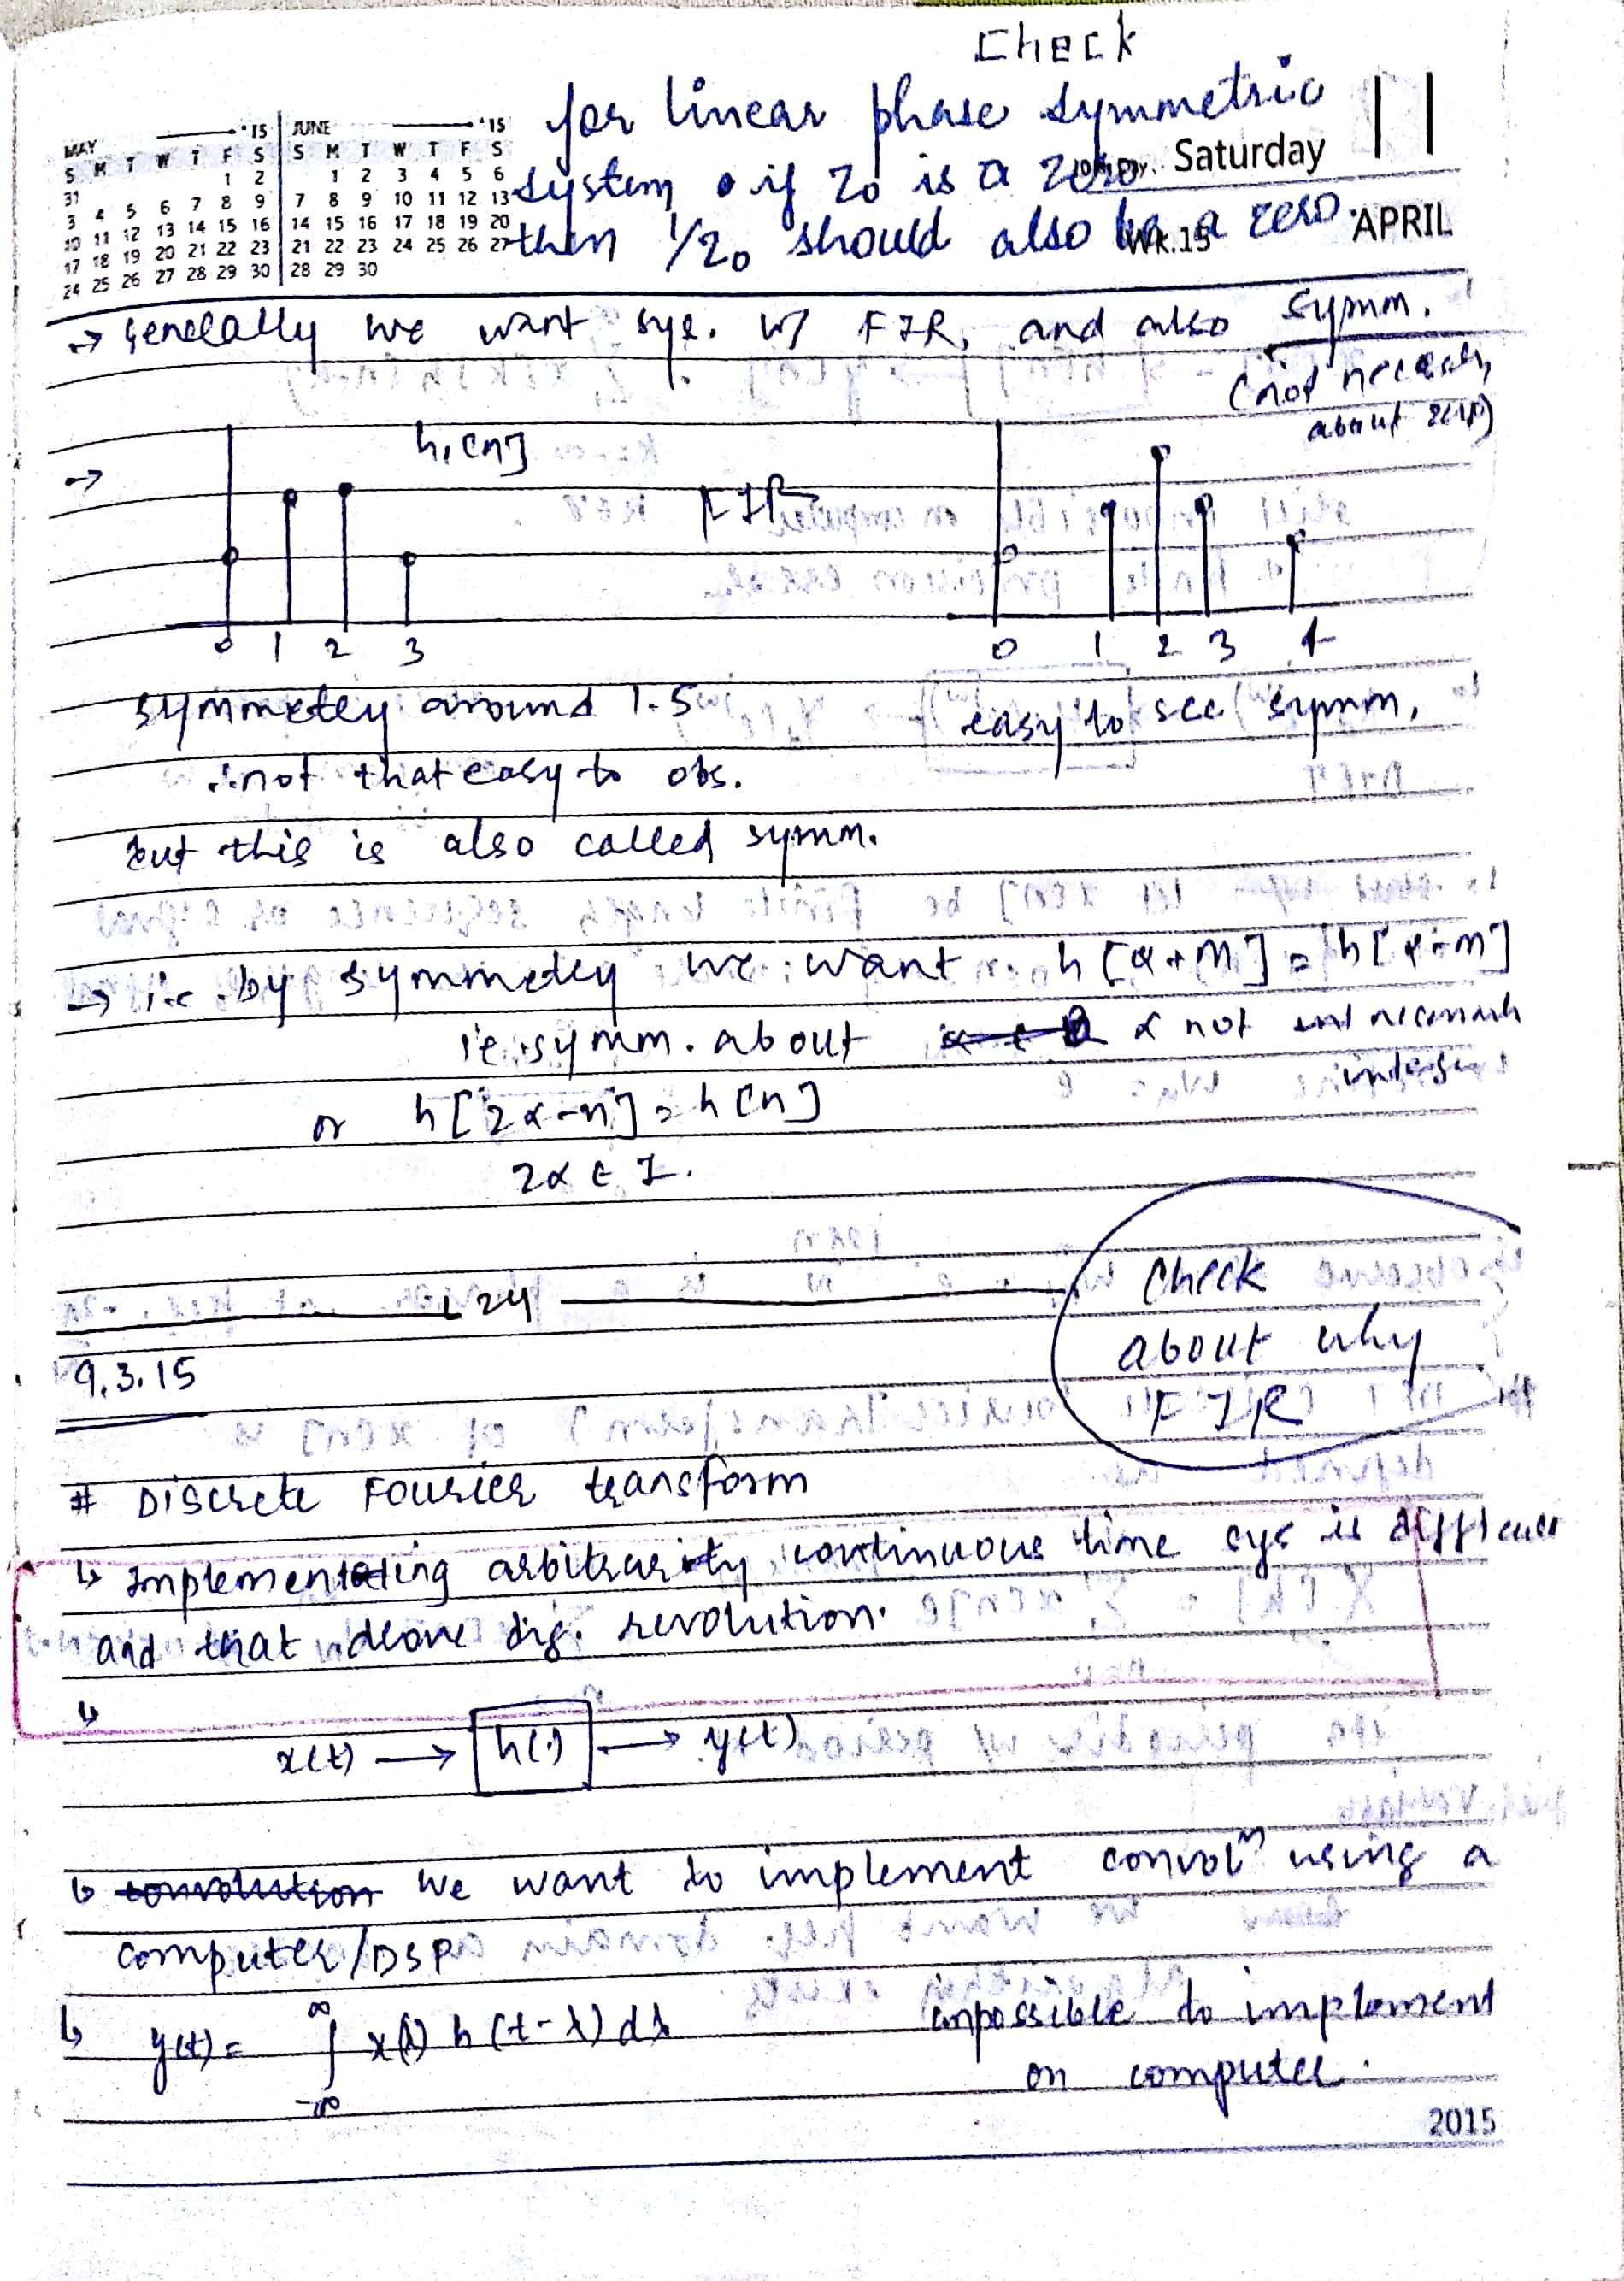 Check
for linear phase symmetric
system if z₀ is a zero
then 1/z₀ should also be a zero.
11
Saturday
Wk.15
APRIL
MAY '15
S M T W T F S
31 1 2
3 4 5 6 7 8 9
10 11 12 13 14 15 16
17 18 19 20 21 22 23
24 25 26 27 28 29 30
JUNE '15
S M T W T F S
1 2 3 4 5 6
7 8 9 10 11 12 13
14 15 16 17 18 19 20
21 22 23 24 25 26 27
28 29 30
→ Generally we want sys. w/ FIR, and also symm.
(not necessarily
about zero)
→ h₁[n] FIR
0 1 2 3
0 1 2 3 4
symmetry around 1.5
∴ not that easy to obs.
easy to see symm.
but this is also called symm.
→ i.e. by symmetry we want h[α+m] = h[α-m]
ie symm. about α not necessarily
integer
or h[2α-n] = h[n]
2α ∈ I.
L24
9.3.15
Check
about why
FIR
# Discrete Fourier transform
↳ Implementing arbitrarity continuous time sys is difficult
and that drove dig. revolution.
↳
x(t) → h(.) → y(t)
↳ convolution We want to implement convolⁿ using a
computer/DSP
↳ y(t) = ∫ x(λ) h(t-λ) dλ
∞
-∞
impossible to implement
on computer.
2015